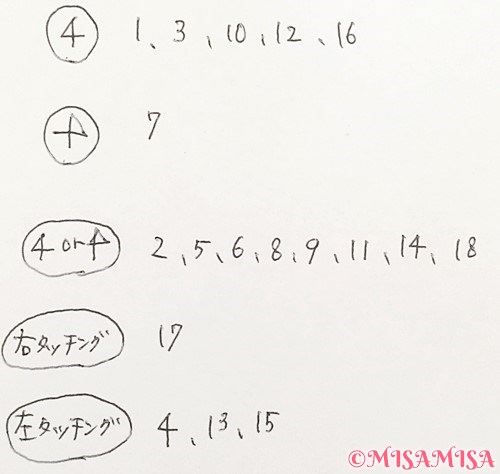 4 1、3、10、12、16
4 7
4 or 4 2、5、6、8、9、11、14、18
右タッチング 17
左タッチング 4、13、15
©MISAMISA